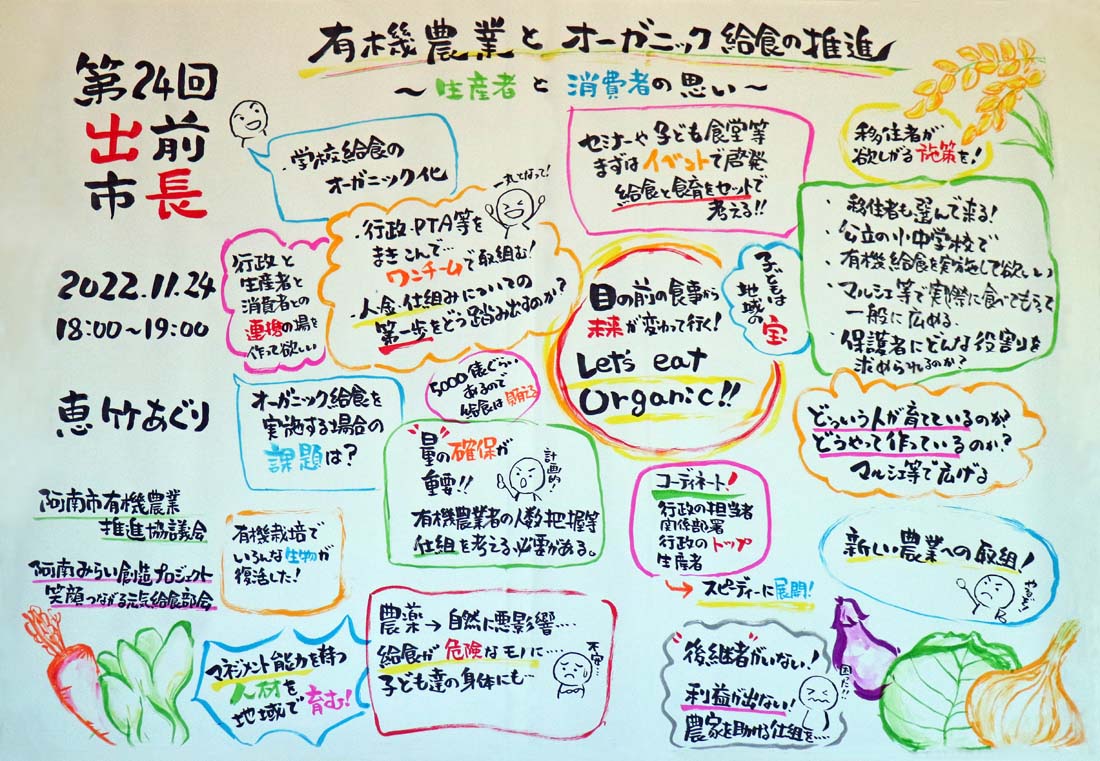 有機農業とオーガニック給食の推進
～生産者と消費者の思い～
第24回
出前
市長
2022.11.24
18:00～19:00
恵竹あぐり
阿南市有機農業
推進協議会
阿南みらい創造プロジェクト
笑顔つながる元気給食部会
・学校給食の
オーガニック化
一丸となって!
・行政・PTA等を
まきこんで…
ワンチームで取組む!
人・金・仕組みについての
第一歩をどう踏み出すのか?
行政と
生産者と
消費者との
連携の場を
作って欲しい
セミナーや子ども食堂等
まずはイベントで啓発
給食と食育をセットで
考える!!
移住者が
欲しがる施策を!
・移住者も選んで来る!
・公立の小中学校で
・有機給食を実施して欲しい
・マルシェ等で実際に食べてもらって
一般に広める.
・保護者にどんな役割りを
求められるのか?
子どもは
地域の
宝
目の前の食事から
未来が変わって行く!
Let's eat
Organic!!
5000俵ぐらい
あるので
給食は賄える
オーガニック給食を
実施する場合の
課題は?
"量の確保が
重要!!
計画的!
有機農業者の人数把握等
仕組を考える必要がある。
どういう人が育てているのか?
どうやって作っているのか?
マルシェ等で広げる
コーディネート!
行政の担当者
関係部署
行政のトップ
生産者
→スピーディーに展開!
有機栽培で
いろんな生物が
復活した!
新しい農業への取組!
やるぞ!
マネジメント能力を持つ
人材を
地域で育む!
農薬→自然に悪影響….
給食が危険なモノに….
子ども達の身体にも…
不安…
"後継者がいない!
困った!!
利益が出ない!
農家を助ける仕組を….